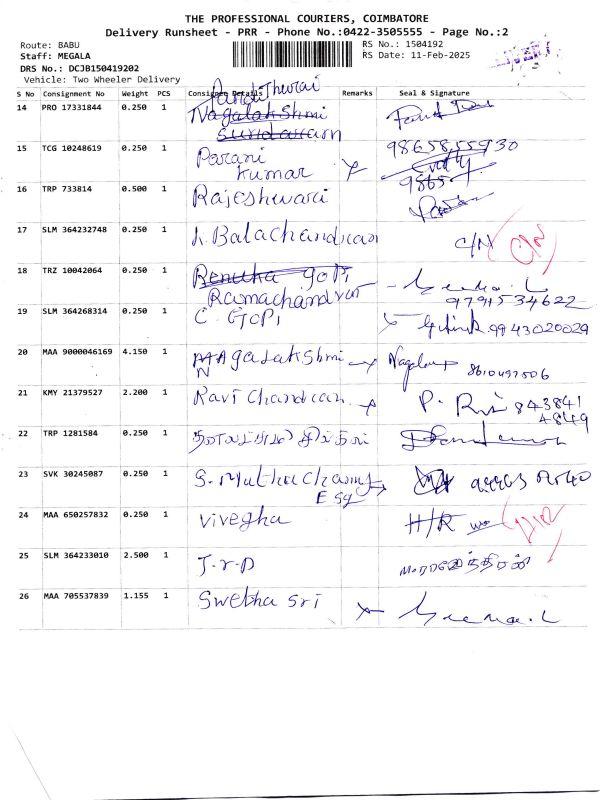 THE PROFESSIONAL COURIERS, COIMBATORE
Delivery Runsheet - PRR - Phone No.:0422-3505555 - Page No.:2
Route: BABU
RS No.: 1504192
Staff: MEGALA
RS Date: 11-Feb-2025
DRS No.: DCJB150419202
Vehicle: Two Wheeler Delivery
S No Consignment No Weight PCS Consignee Details Remarks Seal & Signature
14 PRO 17331844 0.250 1 Nagalakshmi
Sundaram
15 TCG 10248619 0.250 1 Parani 98658 55930
Kumar
16 TRP 733814 0.500 1 Rajeshwari 9865
17 SLM 364232748 0.250 1 Balachandran C/N C/N
18 TRZ 10042064 0.250 1 Renuka Gopi
Ramachandran 9791534622
19 SLM 364268314 0.250 1 C. Gopi 9943020029
20 MAA 9000046169 4.150 1 Nagalakshmi 8610497506
21 KMY 21379527 2.200 1 Ravi Chandran P. 843841
4849
22 TRP 1281584 0.250 1
23 SVK 30245087 0.250 1 S. Muthuchamy
Esq
24 MAA 650257832 0.250 1 Vivegha H/R
25 SLM 364233010 2.500 1 J.r.p
26 MAA 705537839 1.155 1 Swetha Sri